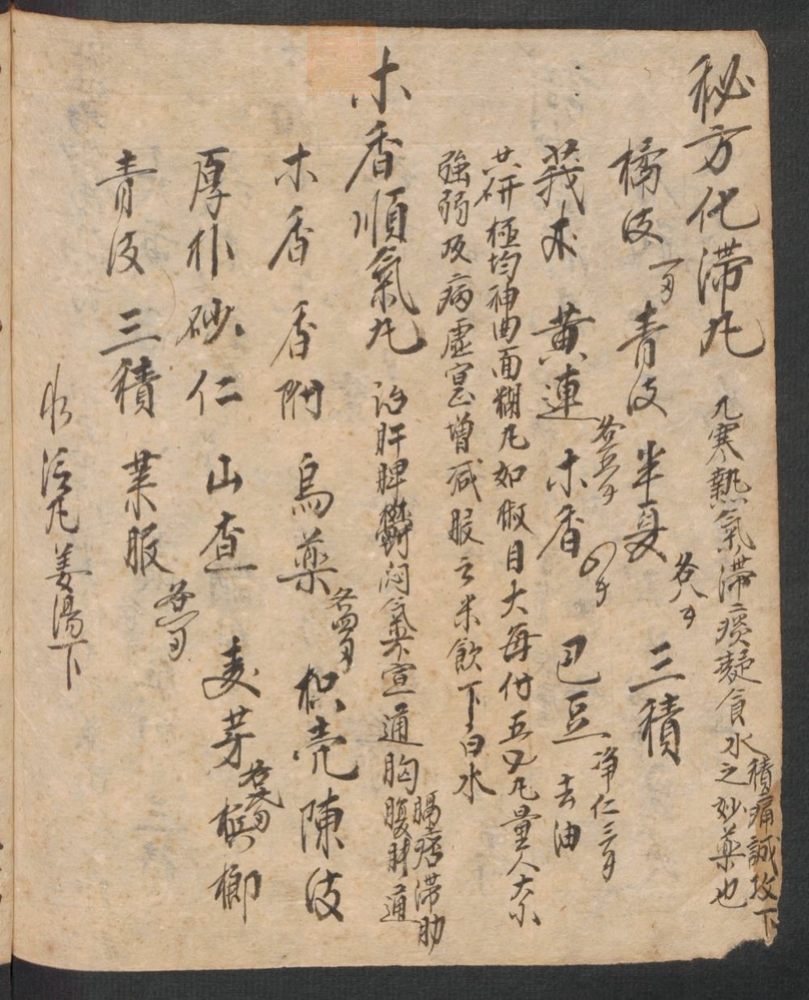 秘方化滯丸 凡寒熱氣滯痰凝食水之妙藥也
積痛誠攻下
橘皮 青皮 半夏 各八 三積
莪朮 黄連 木香 巴豆 去油 淨仁
共研極均神曲面糊丸如椒目大每付五七丸量人大小
強弱及病虛寔增減服之米飲下白水
木香順氣丸 治肝脾鬱悶氣不宣通胸腹肘通
膈痞滯肋
木香 香附 烏藥 枳壳 陳皮
厚朴 砂仁 山查 麦芽 檳榔
青皮 三積 菜服
水泛丸姜湯下